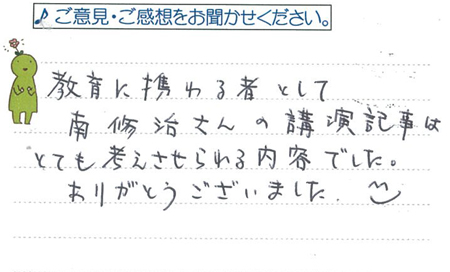 ♪ご意見・ご感想をお聞かせください。
教育に携わる者として
南修治さんの講演記事は
とても考えさせられる内容でした。
ありがとうございました.